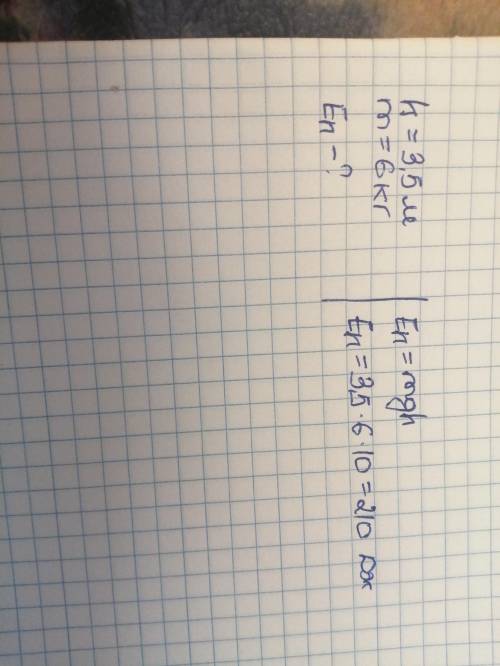 h = 3,5 м
m = 6 кг
Еп - ?
Еп = mgh
Еп = 3,5 · 6 · 10 = 210 Дж